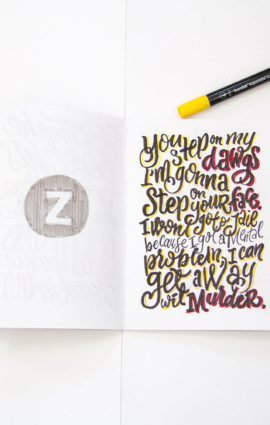 Z
you step on my
dawgs
I'm gonna
Step on your face.
I won't go to Jail
because I got a Mental
problem, I can
get away
wit Murder.